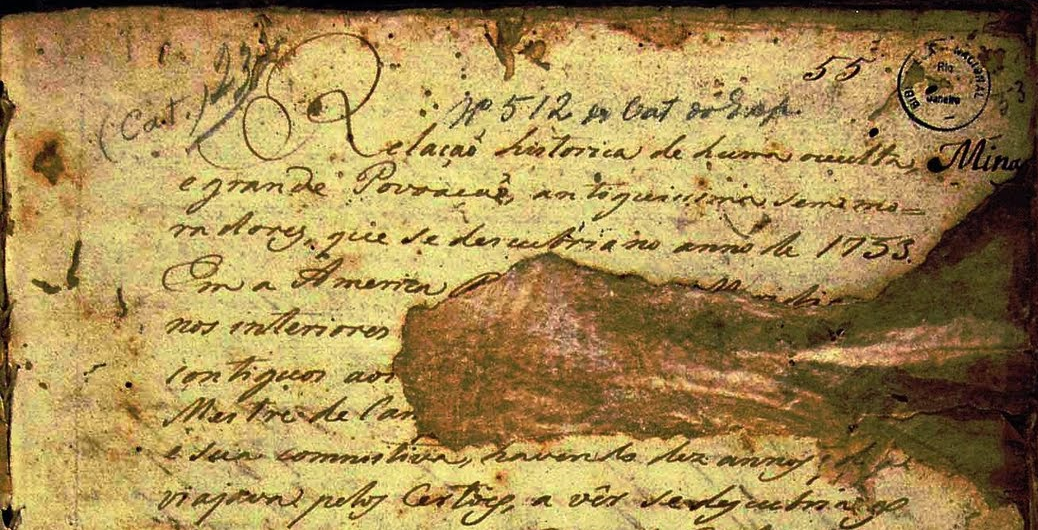 55
(Cat.) 23
Nº 512 do Cat do
BIB NACIONAL
Rio
Janeiro
Relação historica de huma occulta, Minas
e grande Povoacaõ, antiquissima sem mo-
radores, que se descubriu no anno de 1753.
Em a America
nos interiores
contiguos aos
Mestre de Can
e sua commitiva, havendo dez annos,
viajava pelos Certões, a vêr se descubria